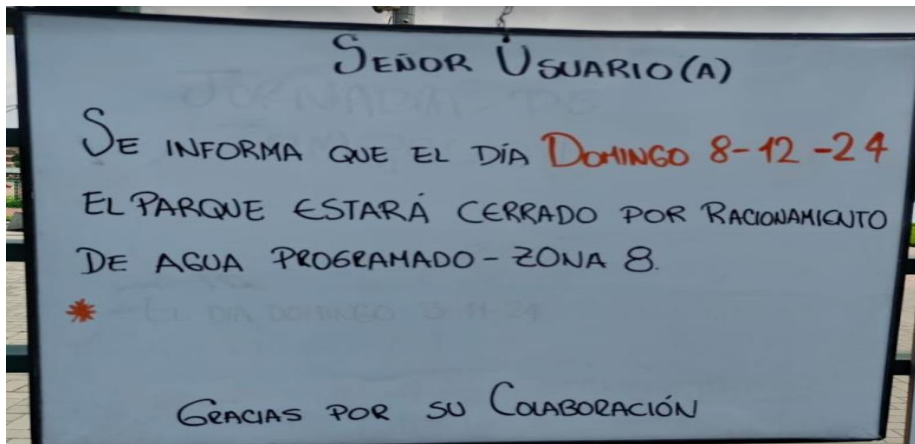 SEÑOR USUARIO(A)
SE INFORMA QUE EL DÍA DOMINGO 8-12-24
EL PARQUE ESTARÁ CERRADO POR RACIONAMIENTO
DE AGUA PROGRAMADO - ZONA 8.
* - EL DIA DOMINGO 3-11-24
GRACIAS POR SU COLABORACIÓN